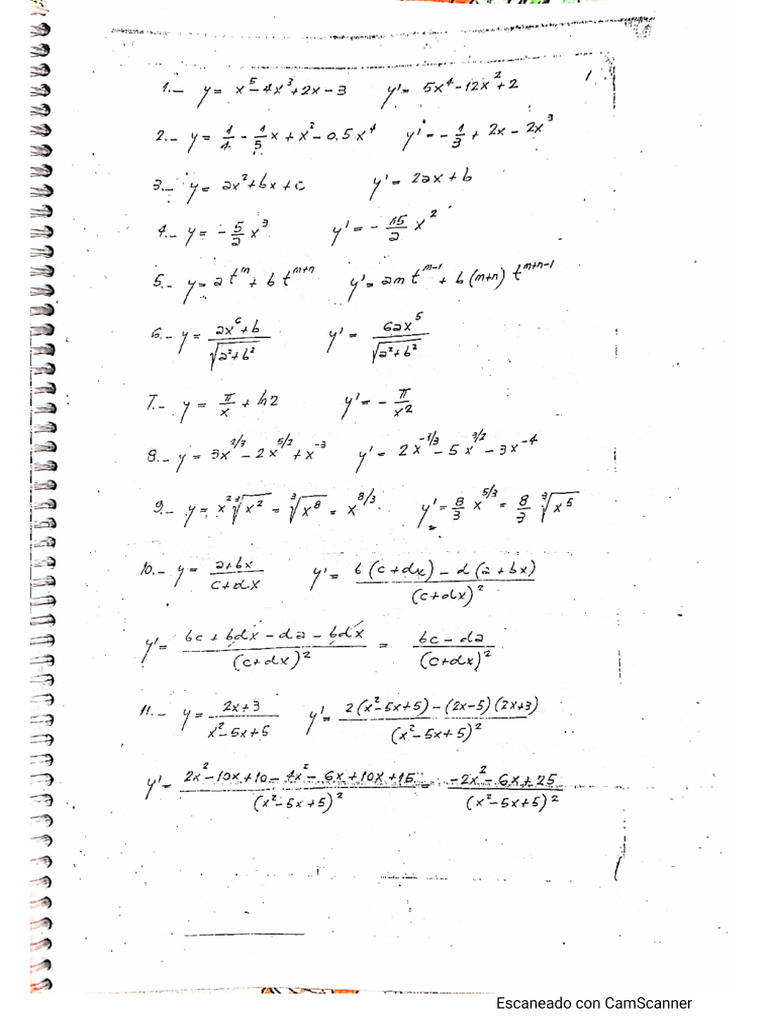 1.- y = x⁵ - 4x³ + 2x - 3 y' = 5x⁴ - 12x² + 2
2.- y = 1/4 - 1/5 x + x² - 0.5x⁴ y' = - 1/3 + 2x - 2x³
3.- y = ax² + bx + c y' = 2ax + b
4.- y = - 5/2 x³ y' = - 15/2 x²
5.- y = a t^m + b t^(m+n) y' = am t^(m-1) + b (m+n) t^(m+n-1)
6.- y = (ax⁶ + b)/√(a² + b²) y' = 6ax⁵/√(a² + b²)
7.- y = π/x + ln2 y' = - π/x²
8.- y = 3x^(2/3) - 2x^(5/2) + x^(-3) y' = 2x^(-1/3) - 5x^(3/2) - 3x^(-4)
9.- y = x² ∛(x²) = ∛(x⁸) = x^(8/3) y' = 8/3 x^(5/3) = 8/3 ∛(x⁵)
10.- y = (a + bx)/(c + dx) y' = (b(c + dx) - d(a + bx))/(c + dx)²
y' = (bc + bdx - da - bdx)/(c + dx)² = (bc - da)/(c + dx)²
11.- y = (2x + 3)/(x² - 5x + 5) y' = (2(x² - 5x + 5) - (2x - 5)(2x + 3))/(x² - 5x + 5)²
y' = (2x² - 10x + 10 - 4x² - 6x + 10x + 15)/(x² - 5x + 5)² = (-2x² - 6x + 25)/(x² - 5x + 5)²
Escaneado con CamScanner